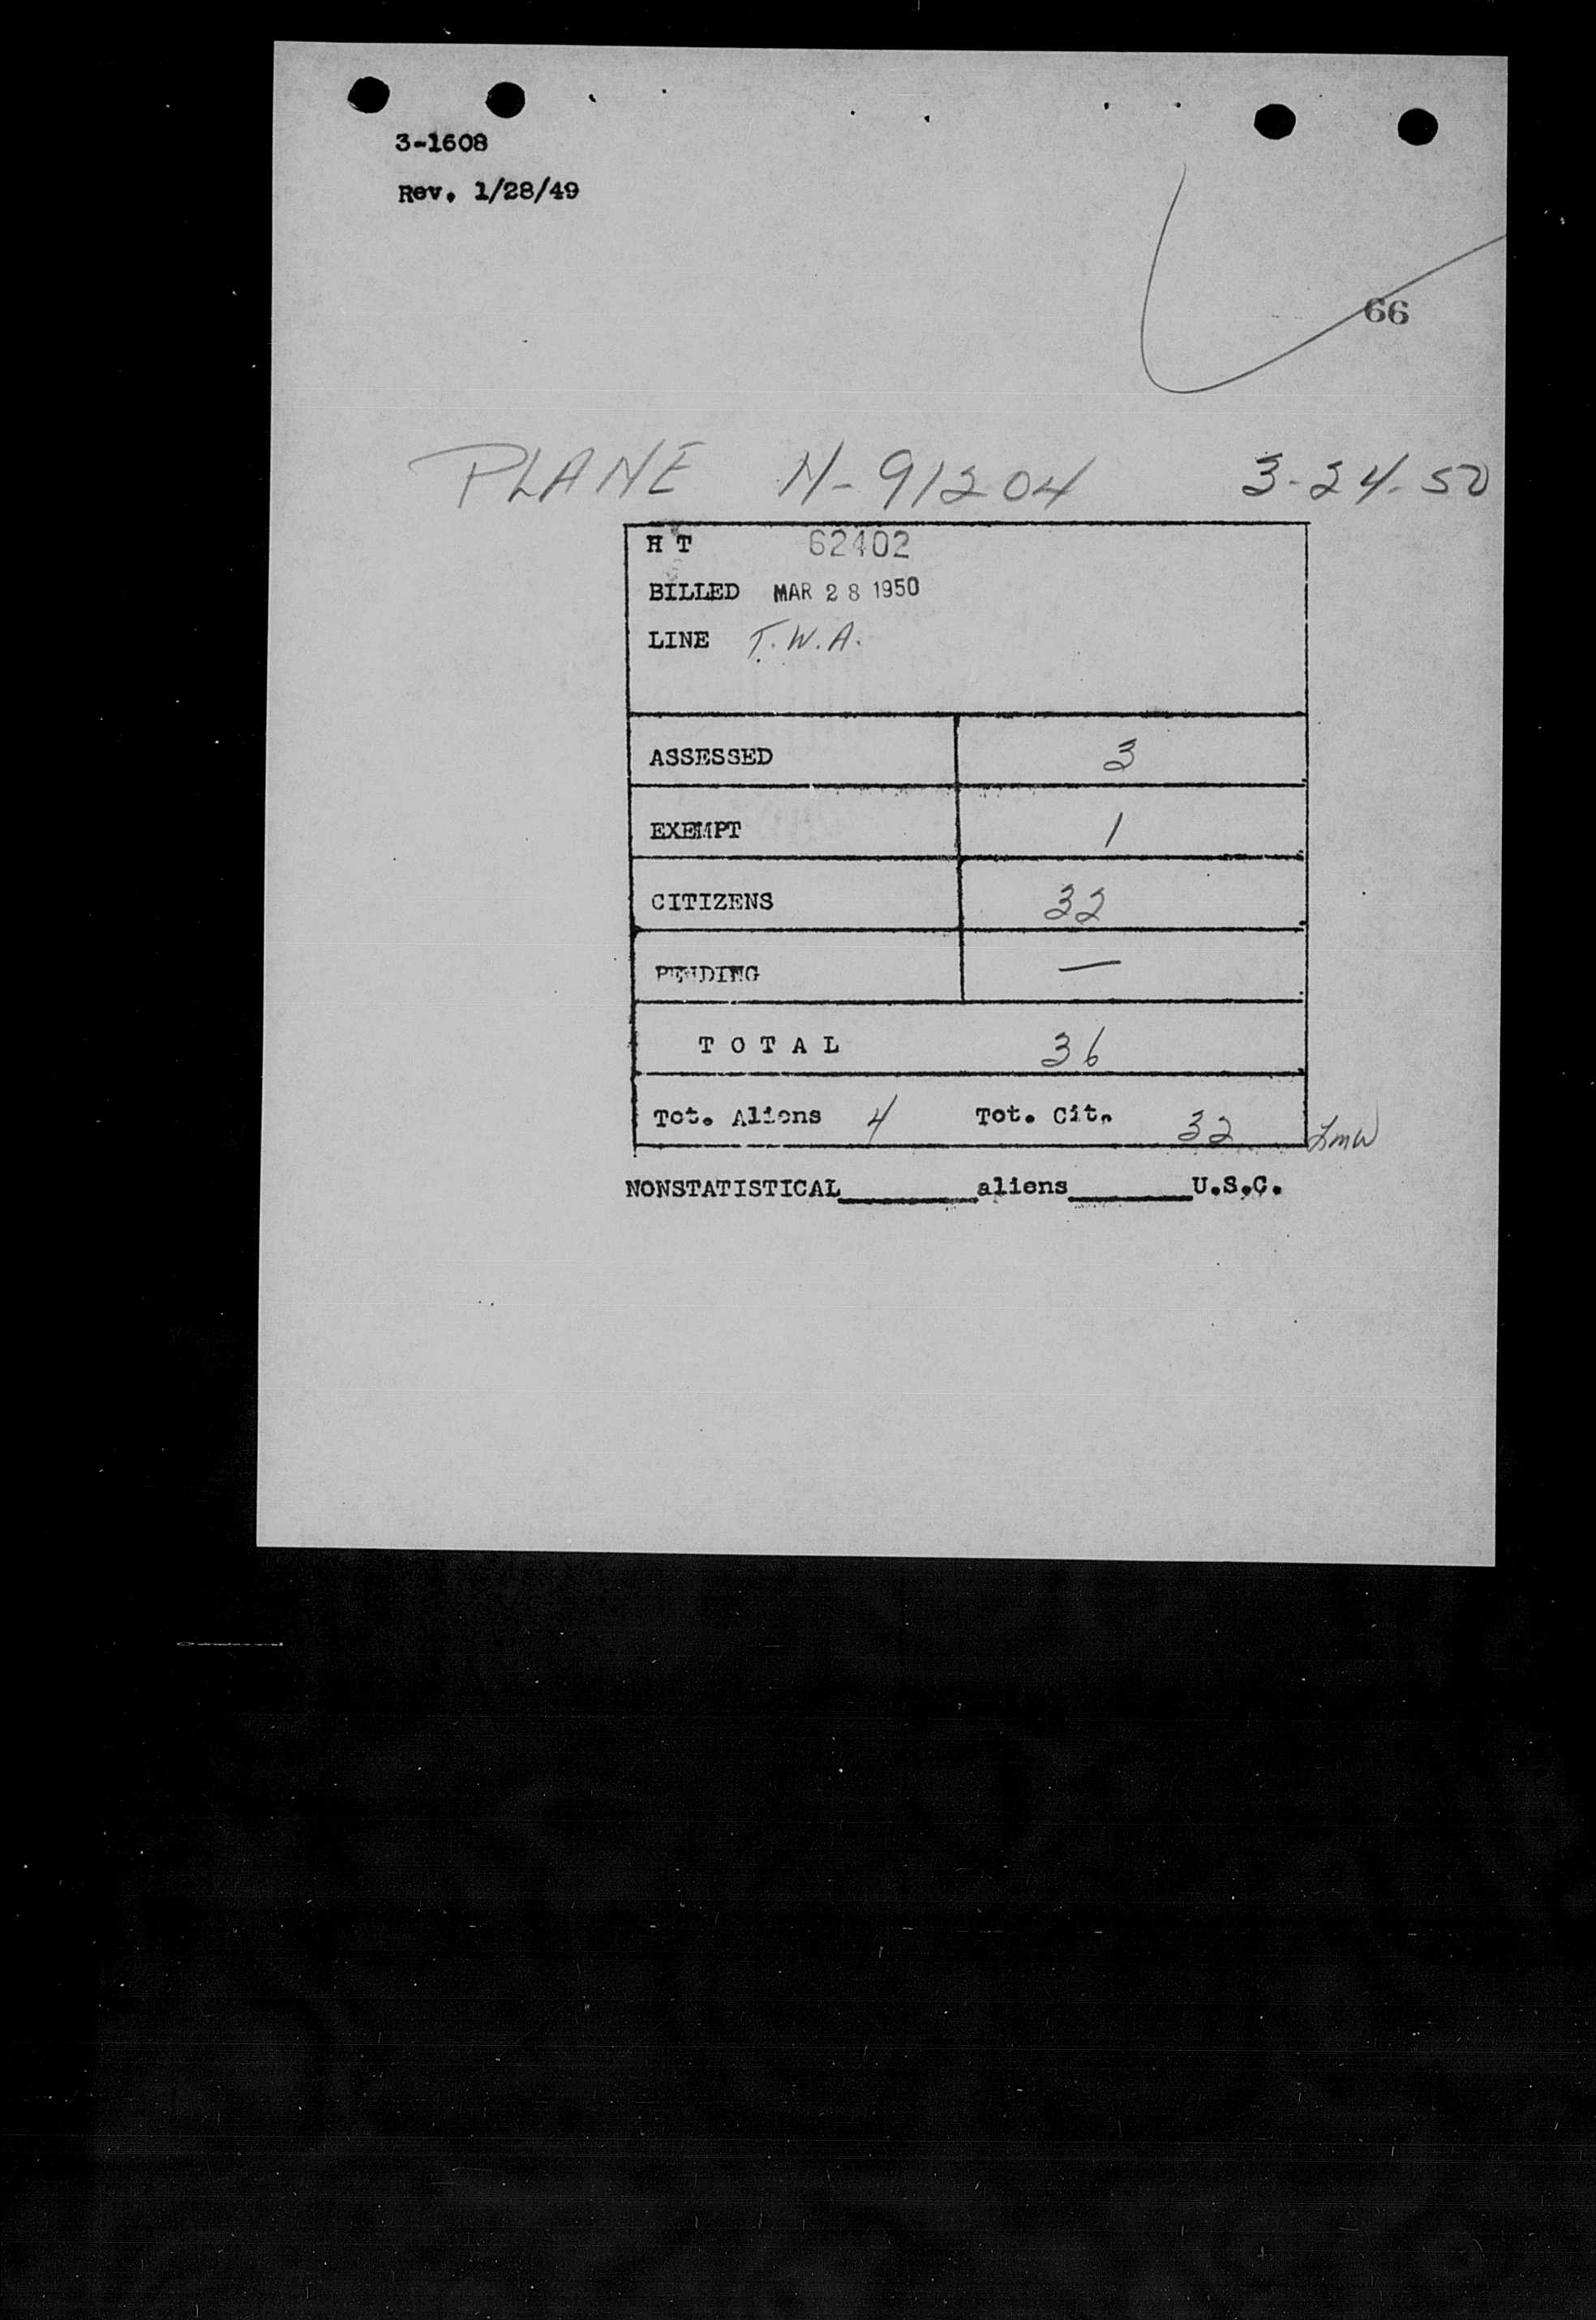 3-1608
Rev. 1/28/49
66
PLANE N-91204 3-24-50
H T 62402
BILLED MAR 28 1950
LINE T.W.A.
ASSESSED 3
EXEMPT 1
CITIZENS 32
PENDING —
T O T A L 36
Tot. Aliens 4 Tot. Cit. 32 LMW
NONSTATISTICAL________aliens________U.S.C.